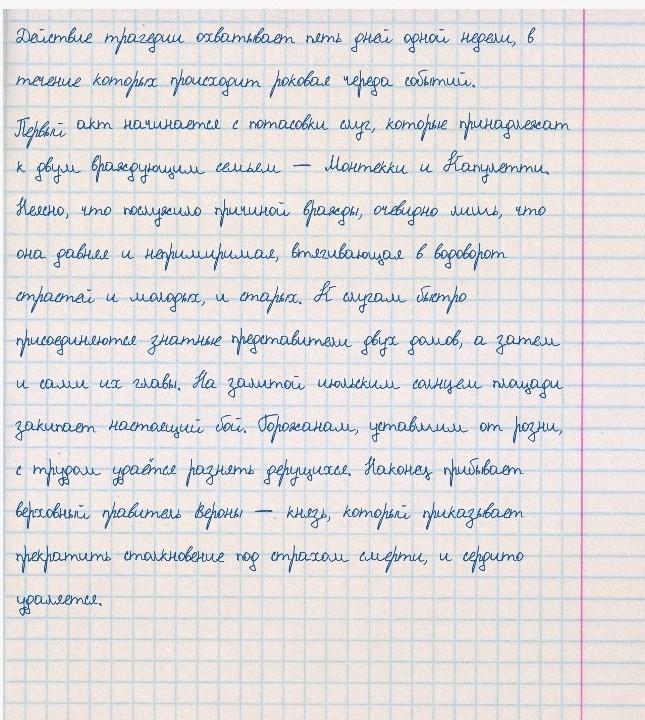 Действие трагедии охватывает пять дней одной недели, в
течение которых происходит роковая череда событий.
Первый акт начинается с потасовки слуг, которые принадлежат
к двум враждующим семьям — Монтекки и Капулетти.
Неясно, что послужило причиной вражды, очевидно лишь, что
она давняя и непримиримая, втягивающая в водоворот
страстей и молодых, и старых. К слугам быстро
присоединяются знатные представители двух домов, а затем
и сами их главы. На залитой июльским солнцем площади
закипает настоящий бой. Горожанам, уставшим от розни,
с трудом удаётся разнять дерущихся. Наконец прибывает
верховный правитель Вероны — князь, который приказывает
прекратить столкновение под страхом смерти, и сердито
удаляется.